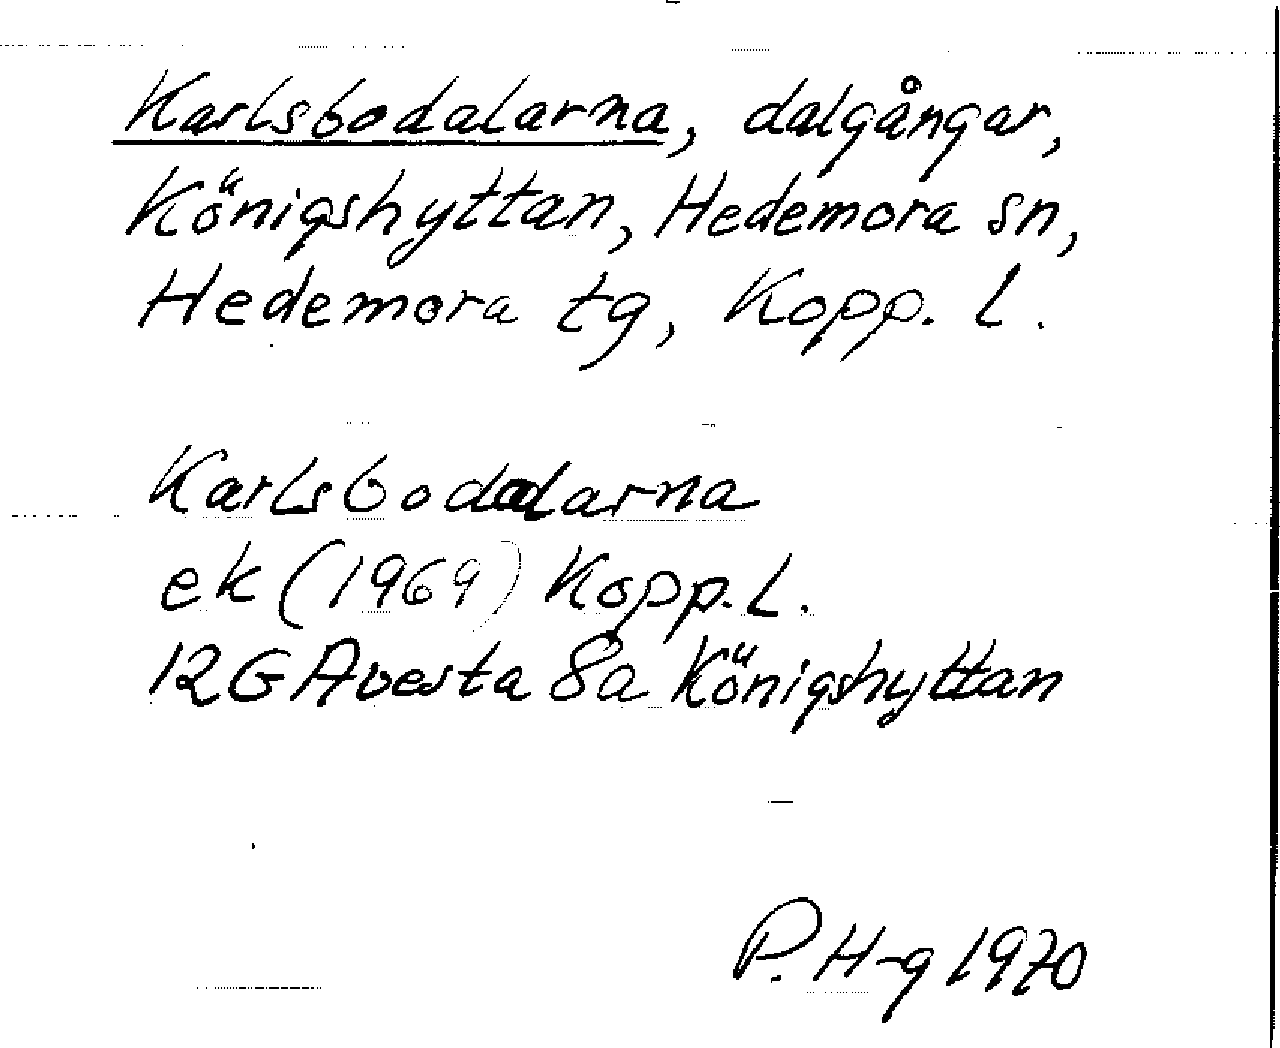 Karlsbodalarna, dalgångar,
Königshyttan, Hedemora sn,
Hedemora tg, Kopp. l.
Karlsbodalarna
ek (1969) Kopp. l.
12G Avesta 8a Königshyttan
P. H-g 1970